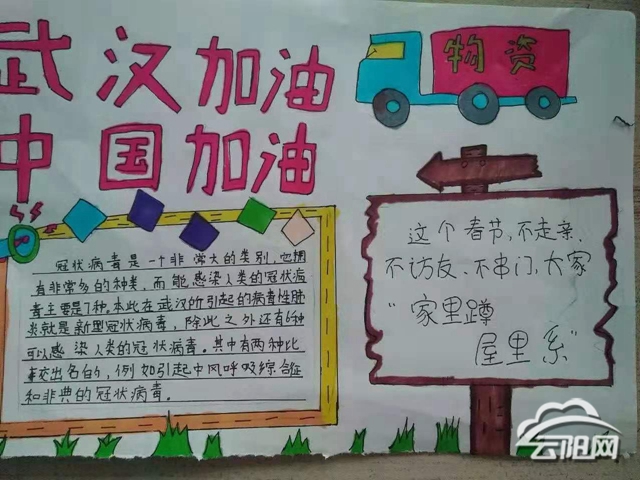 武汉加油
中国加油
物资
冠状病毒是一个非常大的类别,也拥
有非常多的种类,而能感染人类的冠状病
毒主要是7种。本此在武汉所引起的病毒性肺
炎就是新型冠状病毒,除此之外还有6种
可以感染人类的冠状病毒。其中有两种比
较出名的,例如引起中风呼吸综合症
和非典的冠状病毒。
这个春节,不走亲、
不访友、不串门,大家
“家里蹲
屋里系”
云阳网